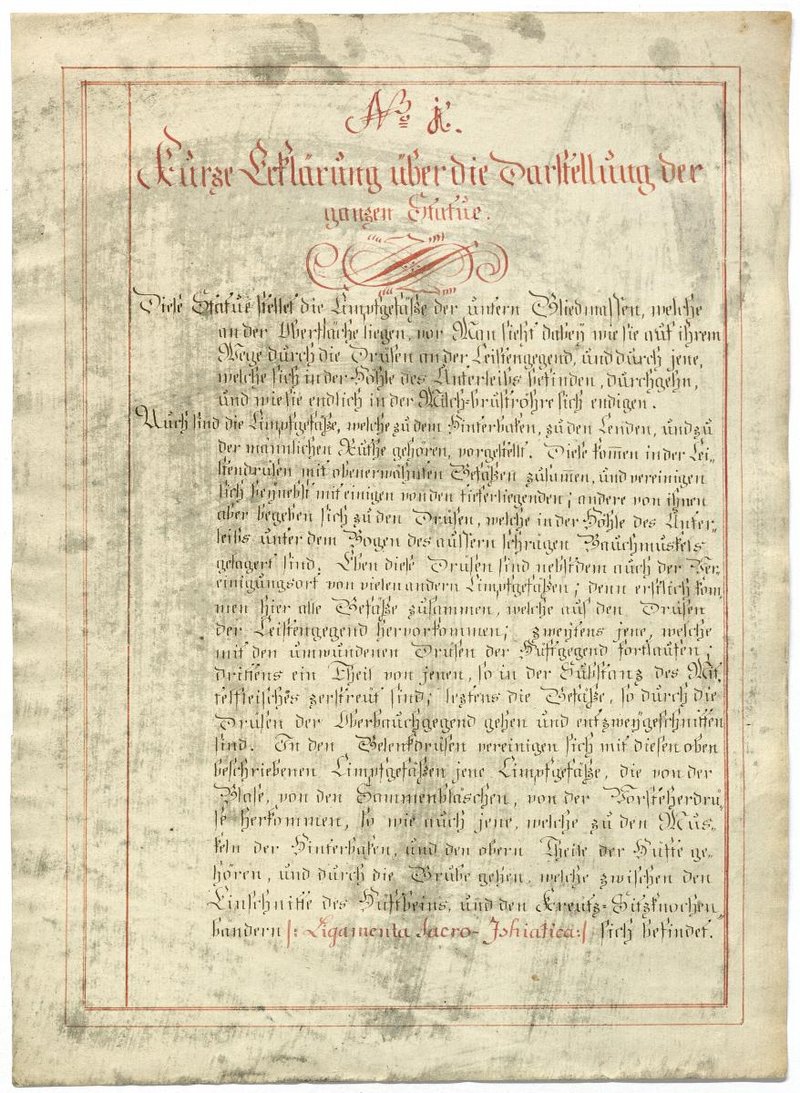 No 1.
Kurze Erklärung über die Darstellung der
ganzen Statue.
Diese Statue stellet die Limpfgefäße der untern Gliedmassen, welche
an der Oberfläche liegen, vor. Man sieht dabeÿ wie sie auf ihrem
Wege durch die Drüsen an der Leistengegend, und durch jene,
welche sich in der Höhle des Unterleibs befinden, durchgehn,
und wie sie endlich in der Milch-brustrohre sich endigen.
Auch sind die Limpfgefäße, welche zu dem Hinterbaken, zu den Lenden, und zu
der männlichen Ruthe gehören, vorgestellt. Diese kom̄en in der Lei-
stendrüsen mit obenerwähnten Gefäßen zusam̄en, und vereinigen
sich beÿnebst mit einigen von den tieferliegenden; andere von ihnen
aber begeben sich zu den Drüsen, welche in der Höhle des Unter-
leibs unter dem Bogen des aussern schrägen Bauchmuskels
gelagert sind. Eben diese Drüsen sind nebstdem auch der Ver,
einigungsort von vielen andern Limpfgefäßen; denn erstlich kom,
men hier alle Gefäße zusammen, welche aus den Drüsen
der Leistengegend hervorkommen; zweÿtens jene, welche
mit den umwundenen Drüsen der Hüftgegend fortlaufen;
drittens ein Theil von jenen, so in der Substanz des Mit,
telfleisches zerstreut sind; leztens die Gefäße, so durch die
Drüsen der Oberbauchgegend gehen und entzweÿgeschnitten
sind. In den Gelenkdrüsen vereinigen sich mit diesen oben
beschriebenen Limpfgefäßen jene Limpfgefäße, die von der
Blase, von den Sammenbläschen, von der Vorsteherdrü-
se herkommen, so wie auch jene, welche zu den Mus-
keln der Hinterbaken, und den obern Theile der Hüfte ge-
hören, und durch die Grube gehen, welche zwischen den
Einschnitte des Hüftbeins, und den Kreutz-Sitzknochen,
bandern |: Ligamenta Sacro-Ishiatica :| sich befindet.